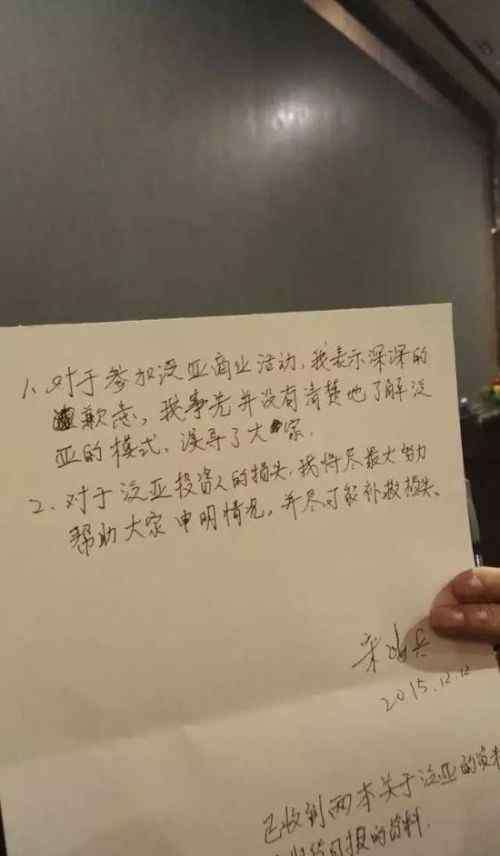 1、对于参加泛亚商业活动，我表示深深的
歉意，我事先并没有清楚地了解泛
亚的模式、误导了大家.
2、对于泛亚投资人的损失，我将尽最大努力
帮助大家申明情况，并尽可能补救损失、
宋鸿兵
2015.12.12
已收到两本关于泛亚的资料
的资料.